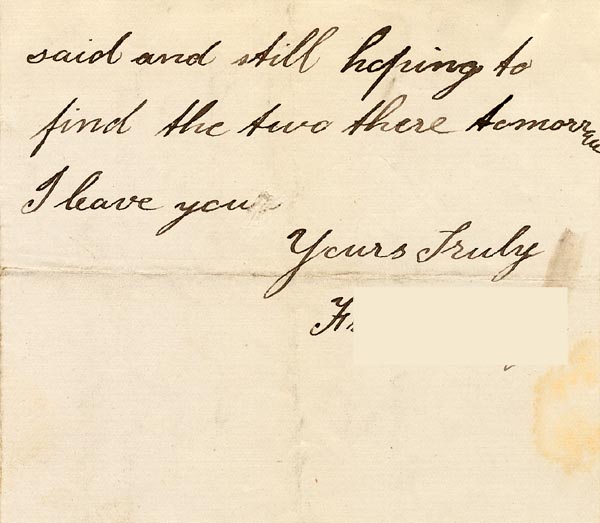 said and still hoping to
find the two there tomorrow
I leave you
Yours Truly